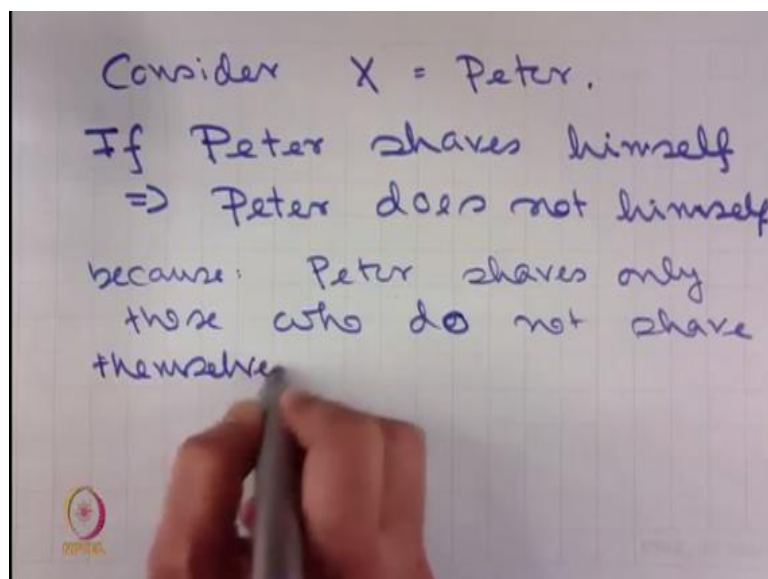 Consider X = Peter.
If Peter shaves himself
=> Peter does not himself
because: Peter shaves only
those who do not shave
themselve
NPTEL